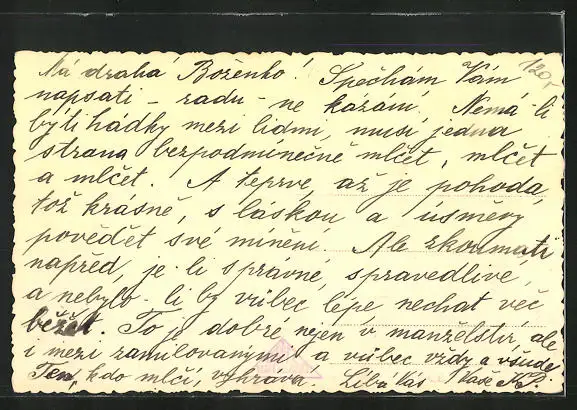 Má drahá Boženko! Spěchám Vám
napsati - radu - ne kázání. Nemá-li
býti hádky mezi lidmi, musí jedna
strana bezpodmínečně mlčet, mlčet
a mlčet. A teprve, až je pohoda,
tož krásně, s láskou a úsměvy
povědět své mínění. Ale zkoumati
napřed, je-li správné, spravedlivé,
a nebylo-li by vůbec lépe nechat věc
běžet. To je dobré nejen v manželství, ale
i mezi zamilovanými a vůbec vždy a všude.
Ten, kdo mlčí, vyhrává. Líbá Vás Vaše
120,-